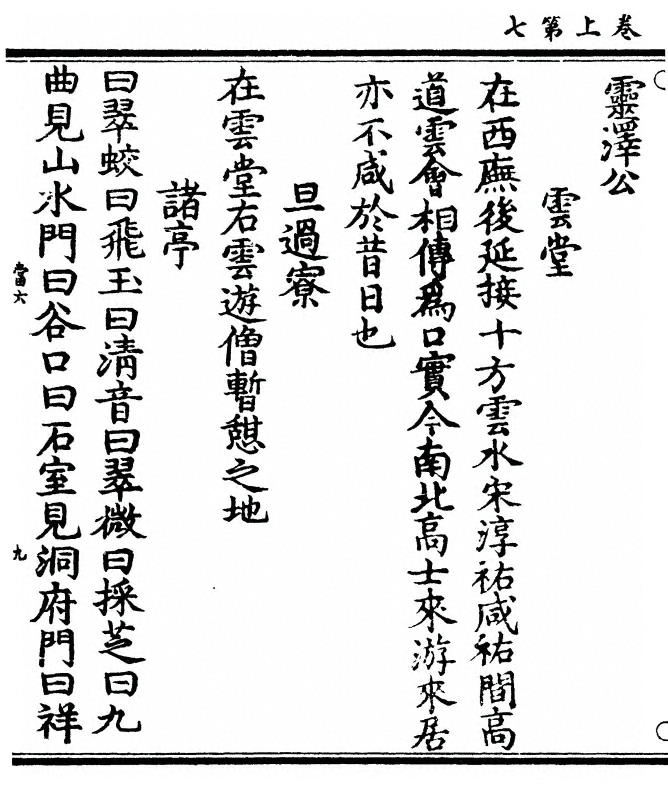 卷上第七
靈澤公
雲堂
在西廡後延接十方雲水宋淳祐咸祐間高
道雲會相傳為口實今南北高士來游來居
亦不咸於昔日也
旦過寮
在雲堂右雲遊僧暫憩之地
諸亭
曰翠蛟曰飛玉曰清音曰翠微曰採芝曰九
曲見山水門曰谷口曰石室見洞府門曰祥
當六
九